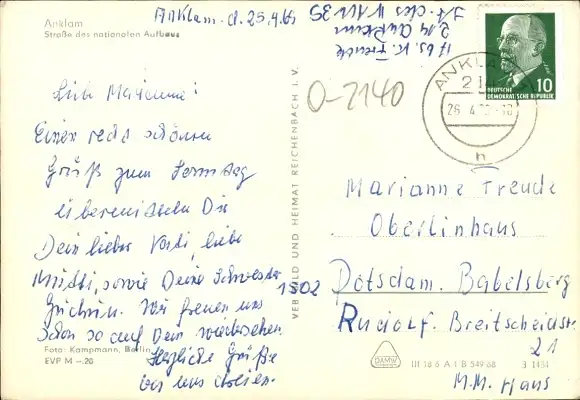 Anklam
Straße des nationalen Aufbaus
Anklam. d. 25.4.
Liebe Marianne!
Einen recht schönen
Gruß zum Sonntag
übermitteln Dir
Dein lieber Vati, liebe
Mutti, sowie Deine Schwester
Wir freuen uns
schon so auf Dein Wiedersehen.
Herzliche Grüße
von uns allen.
Foto: Kampmann, Berlin
EVP M –.20
VEB BILD UND HEIMAT REICHENBACH i. V.
O-2140
ANKLAM
214
10
DEUTSCHE
DEMOKRATISCHE REPUBLIK
h
Marianne Freude
Oberlinhaus
1502 Potsdam. Babelsberg
Rudolf. Breitscheidstr
21
M.M. Haus
DAMW
III 18 6 A 1 B 549/68
3 1434